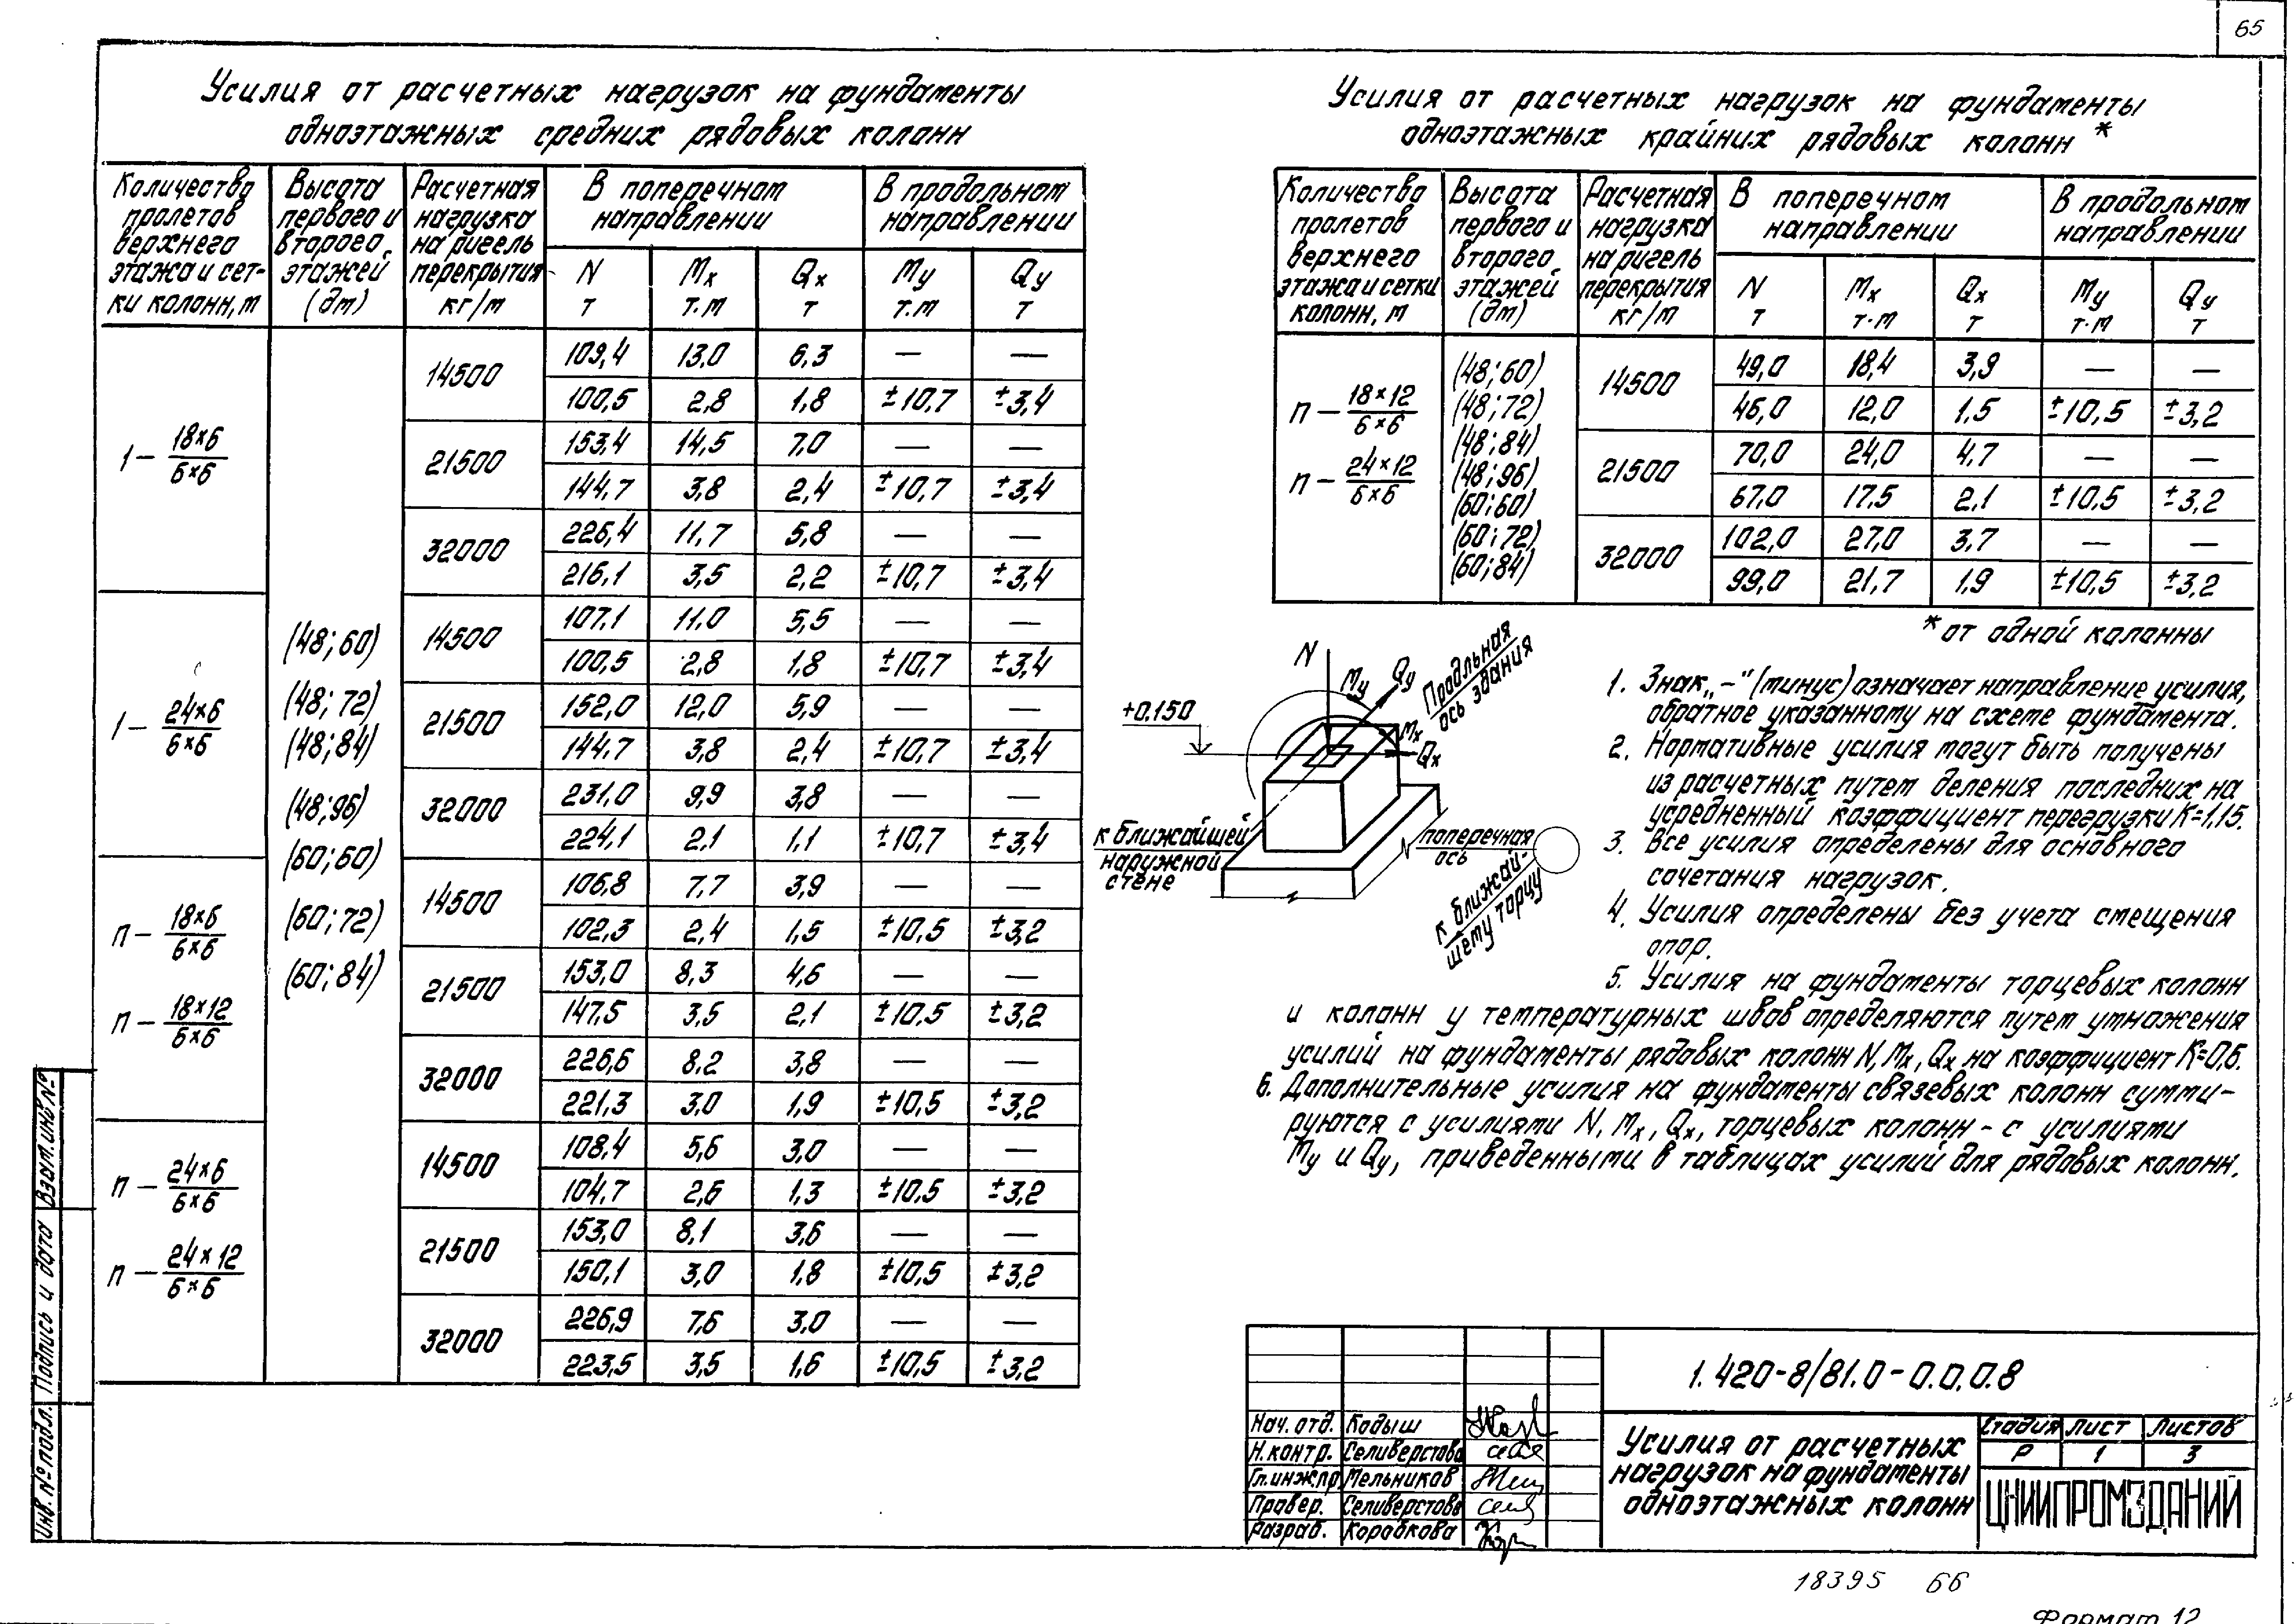 65
Усилия от расчетных нагрузок на фундаменты
одноэтажных средних рядовых колонн
Количество пролетов верхнего этажа и сет-ки колонн, м
Высота первого и второго этажей (дм)
Расчетная нагрузка на ригель перекрытия кг/м
В поперечном направлении
В продольном направлении
N т
Mx т.м
Qx т
My т.м
Qy т
1 – 18×6/6×6
(48; 60)
(48; 72)
(48; 84)
(48; 96)
(60; 60)
(60; 72)
(60; 84)
14500
109,4 13,0 6,3 — —
100,5 2,8 1,8 ±10,7 ±3,4
21500
153,4 14,5 7,0 — —
144,7 3,8 2,4 ±10,7 ±3,4
32000
226,4 11,7 5,8 — —
216,1 3,5 2,2 ±10,7 ±3,4
1 – 24×6/6×6
14500
107,1 11,0 5,5 — —
100,5 2,8 1,8 ±10,7 ±3,4
21500
152,0 12,0 5,9 — —
144,7 3,8 2,4 ±10,7 ±3,4
32000
231,0 9,9 3,8 — —
224,1 2,1 1,1 ±10,7 ±3,4
п – 18×6/6×6
п – 18×12/6×6
14500
106,8 7,7 3,9 — —
102,3 2,4 1,5 ±10,5 ±3,2
21500
153,0 8,3 4,6 — —
147,5 3,5 2,1 ±10,5 ±3,2
32000
226,6 8,2 3,8 — —
221,3 3,0 1,9 ±10,5 ±3,2
п – 24×6/6×6
п – 24×12/6×6
14500
108,4 5,6 3,0 — —
104,7 2,6 1,3 ±10,5 ±3,2
21500
153,0 8,1 3,6 — —
150,1 3,0 1,8 ±10,5 ±3,2
32000
226,9 7,6 3,0 — —
223,5 3,5 1,6 ±10,5 ±3,2
Усилия от расчетных нагрузок на фундаменты
одноэтажных крайних рядовых колонн *
Количество пролетов верхнего этажа и сетки колонн, м
Высота первого и второго этажей (дм)
Расчетная нагрузка на ригель перекрытия кг/м
В поперечном направлении
В продольном направлении
N т
Mx т.м
Qx т
My т.м
Qy т
п – 18×12/6×6
п – 24×12/6×6
(48; 60)
(48; 72)
(48; 84)
(48; 96)
(60; 60)
(60; 72)
(60; 84)
14500
49,0 18,4 3,9 — —
46,0 12,0 1,5 ±10,5 ±3,2
21500
70,0 24,0 4,7 — —
67,0 17,5 2,1 ±10,5 ±3,2
32000
102,0 27,0 3,7 — —
99,0 21,7 1,9 ±10,5 ±3,2
* от одной колонны
N
My
Qy
Mx
Qx
+0.150
Продльная
ось здания
к ближайшей
наружной
стене
поперечная
ось
к ближай-
шему торцу
1. Знак „–" (минус) означает направление усилия,
обратное указанному на схеме фундамента.
2. Нормативные усилия могут быть получены
из расчетных путем деления последних на
усредненный коэффициент перегрузки К=1,15.
3. Все усилия определены для основного
сочетания нагрузок.
4. Усилия определены без учета смещения
опор.
5. Усилия на фундаменты торцевых колонн
и колонн у температурных швов определяются путем умножения
усилий на фундаменты рядовых колонн N, Mx, Qx на коэффициент К=0,6.
6. Дополнительные усилия на фундаменты связевых колонн сумми-
руются с усилиями N, Mx, Qx, торцевых колонн – с усилиями
My и Qy, приведенными в таблицах усилий для рядовых колонн.
Инв. № подл.
Подпись и дата
Взам. инв. №
1.420-8/81.0-0.0.0.8
Нач. отд. Кодыш
Н. контр. Селиверстова
Гл. инж. пр. Мельников
Провер. Селиверстова
Разраб. Коробкова
Усилия от расчетных
нагрузок на фундаменты
одноэтажных колонн
Стадия Лист Листов
Р 1 3
ЦНИИПРОМЗДАНИЙ
18395 66
Формат 12